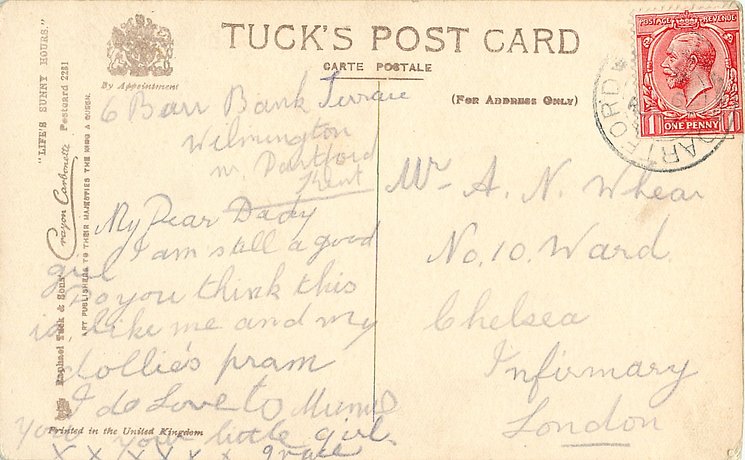 TUCK'S POST CARD
CARTE POSTALE
By Appointment
(For Address Only)
"LIFE'S SUNNY HOURS."
Crayon Carbonette Postcard 2281
Raphael Tuck & Sons'
ART PUBLISHERS TO THEIR MAJESTIES THE KING & QUEEN.
Printed in the United Kingdom
POSTAGE REVENUE
1 ONE PENNY 1
DARTFORD
DARTFORD
6 Barr Bank Terrace
Wilmington
nr. Dartford
Kent
My Dear Dady
I am still a good
girl
Do you think this
is like me and my
dollie's pram
I do Love to
you your little girl
x x x x x x Grace
Mr A. N. Whear
No. 10. Ward
Chelsea
Infirmary
London